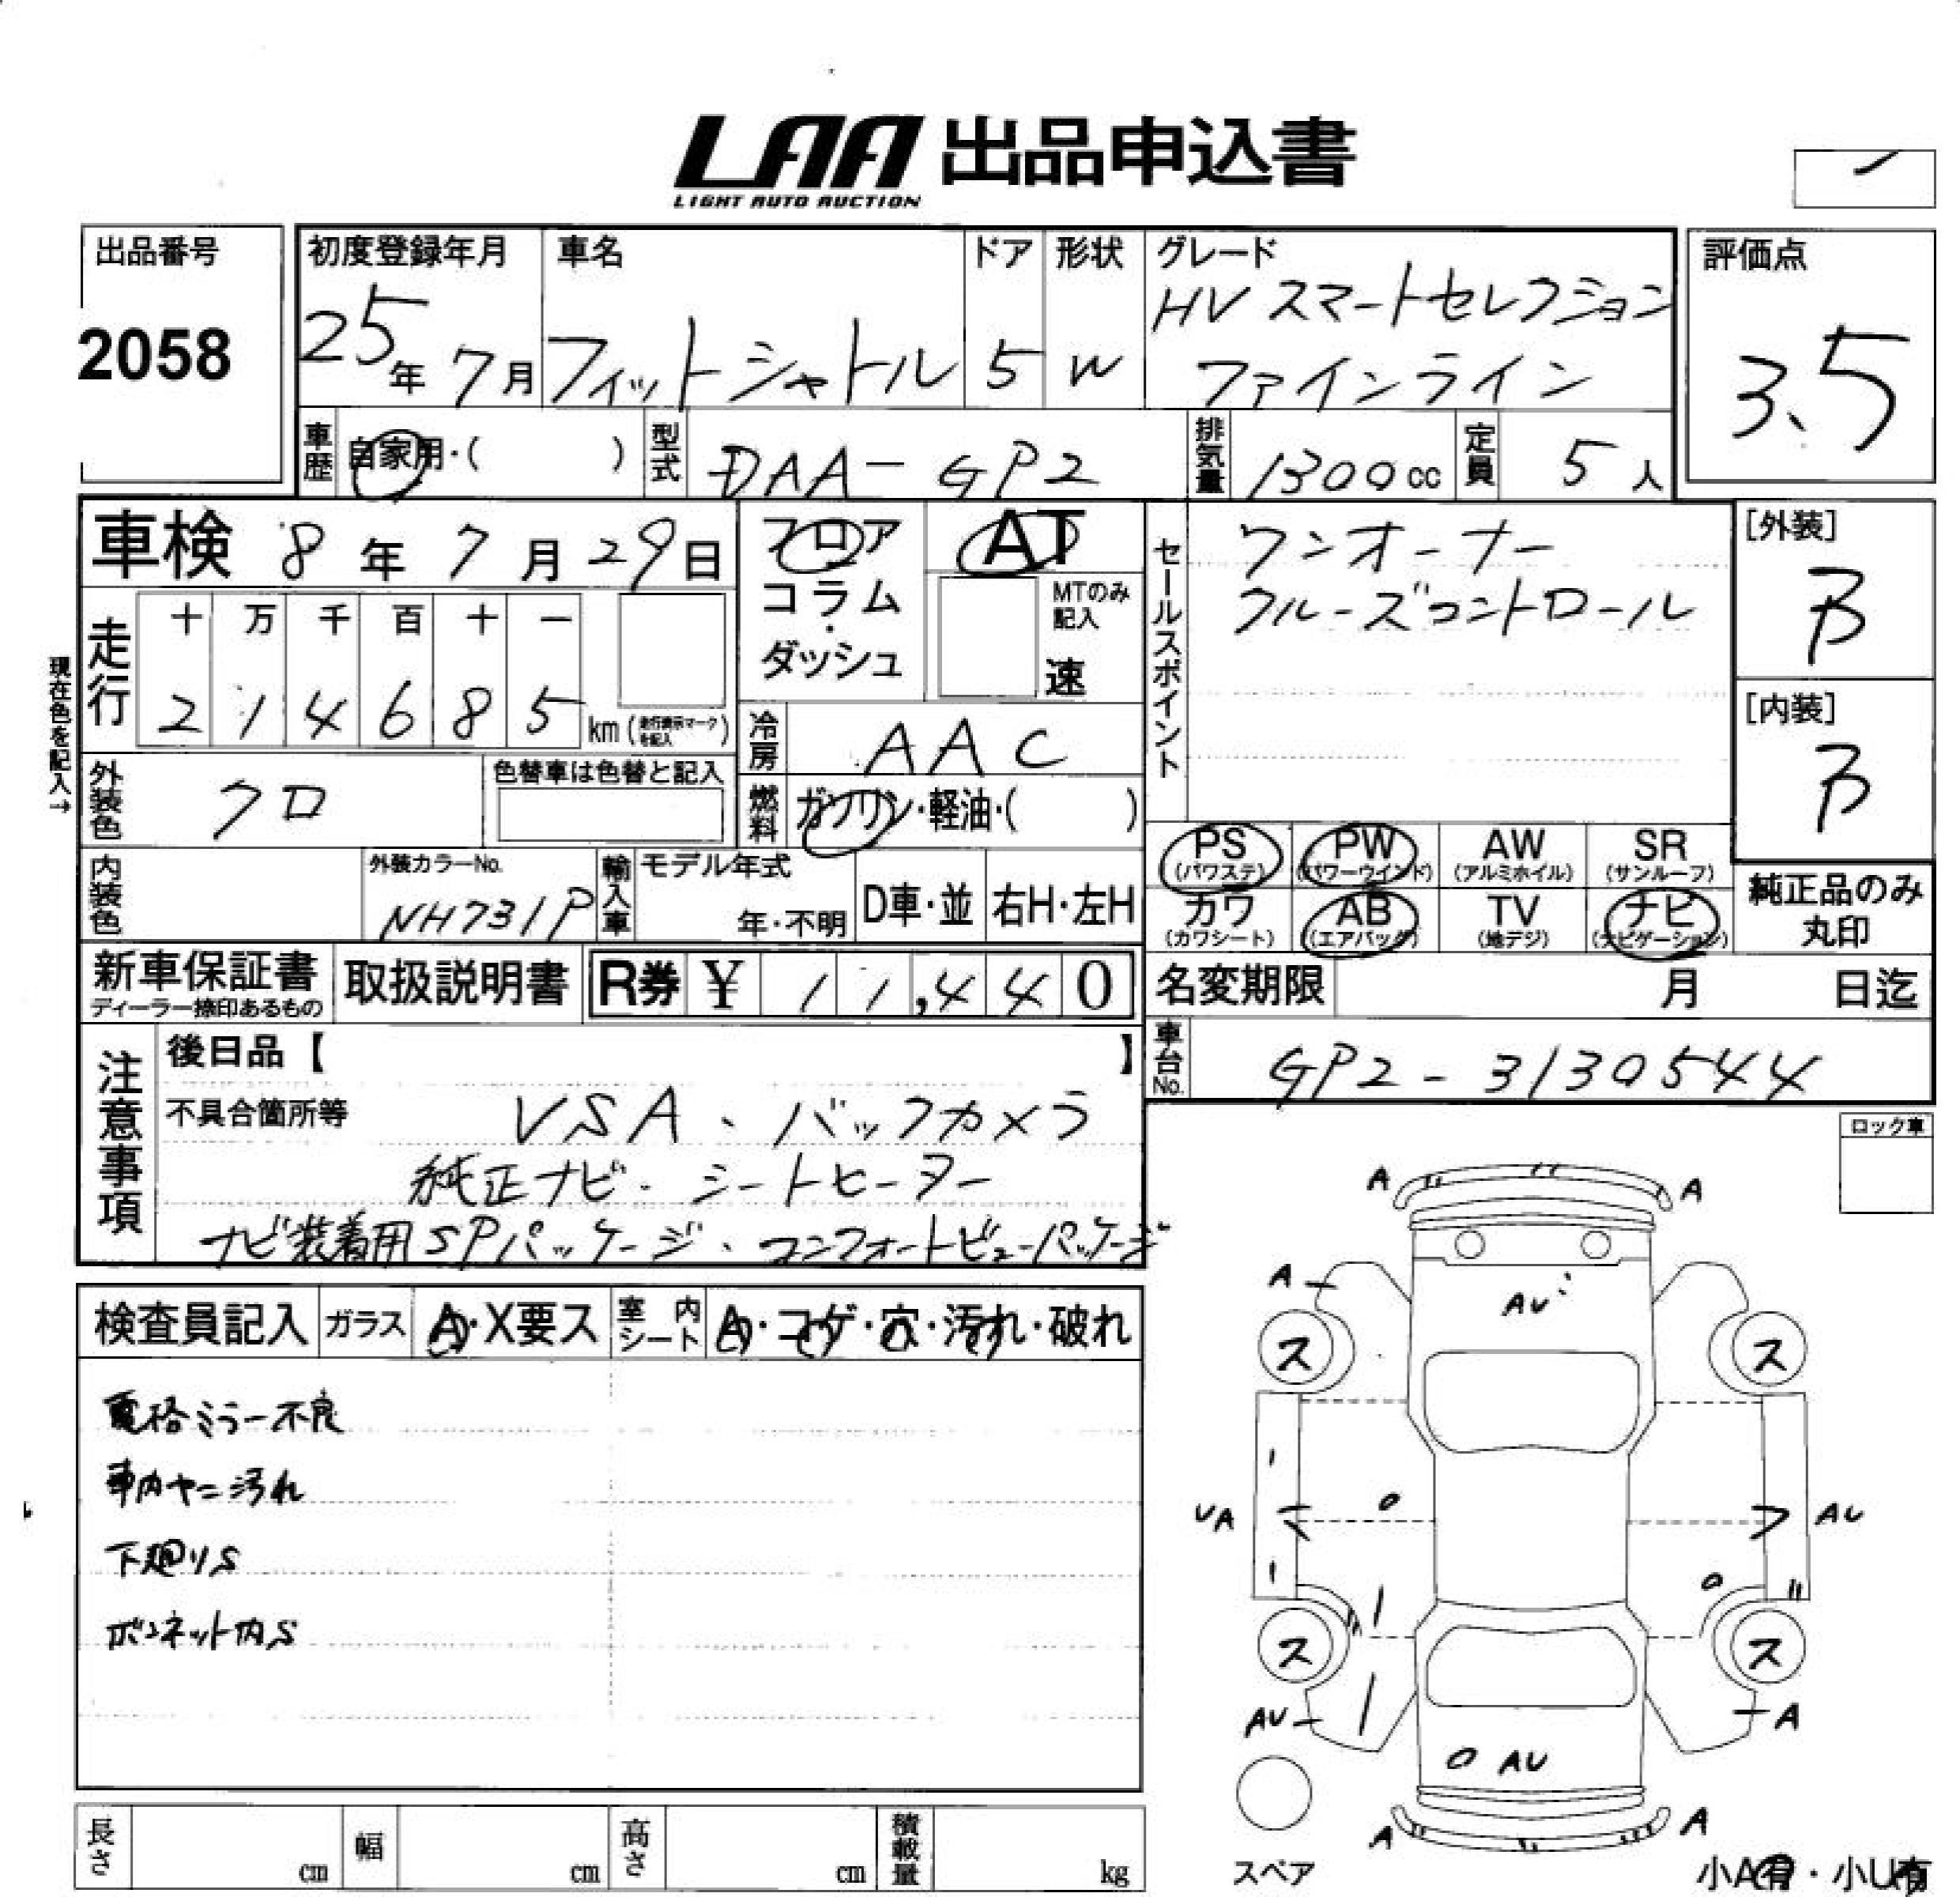 LAA 出品申込書
LIGHT AUTO AUCTION
出品番号
2058
初度登録年月
25年 7月
車名
フィットシャトル
ドア
5
形状
W
グレード
HV スマートセレクション
ファインライン
評価点
3.5
車歴
自家用・( )
型式
DAA-GP2
排気量
1300cc
定員
5人
車検 8年 7月 29日
フロア
コラム
・
ダッシュ
AT
MTのみ
記入
速
セールスポイント
ワンオーナー
クルーズコントロール
[外装]
B
[内装]
B
現在色を記入→
走行
十 万 千 百 十 一
2 1 4 6 8 5 km (走行表示マークを記入)
冷房
AAC
外装色
クロ
色替車は色替と記入
燃料
ガソリン・軽油・( )
PS
(パワステ)
PW
(パワーウインド)
AW
(アルミホイル)
SR
(サンルーフ)
カワ
(カワシート)
AB
(エアバッグ)
TV
(地デジ)
ナビ
(ナビゲーション)
純正品のみ
丸印
内装色
外装カラーNo.
NH731P
輸入車
モデル年式
年・不明
D車・並
右H・左H
新車保証書
ディーラー捺印あるもの
取扱説明書
R券 ¥ 11,440
名変期限 月 日迄
車台No.
GP2-3130544
注意事項
後日品【 】
不具合箇所等
VSA、バックカメラ
純正ナビ・シートヒーター
ナビ装着用SPパッケージ、コンフォートビューパッケージ
ロック車
検査員記入
ガラス
A・X要ス
室内シート
A・コゲ・穴・汚れ・破れ
電格ミラー不良
車内ヤニ汚れ
下廻りS
ボンネット内S
A A
A
AU
ス ス
UA AU
ス ス
AU A
AU
A A
スペア
小A有・小U有
長さ cm
幅 cm
高さ cm
積載量 kg